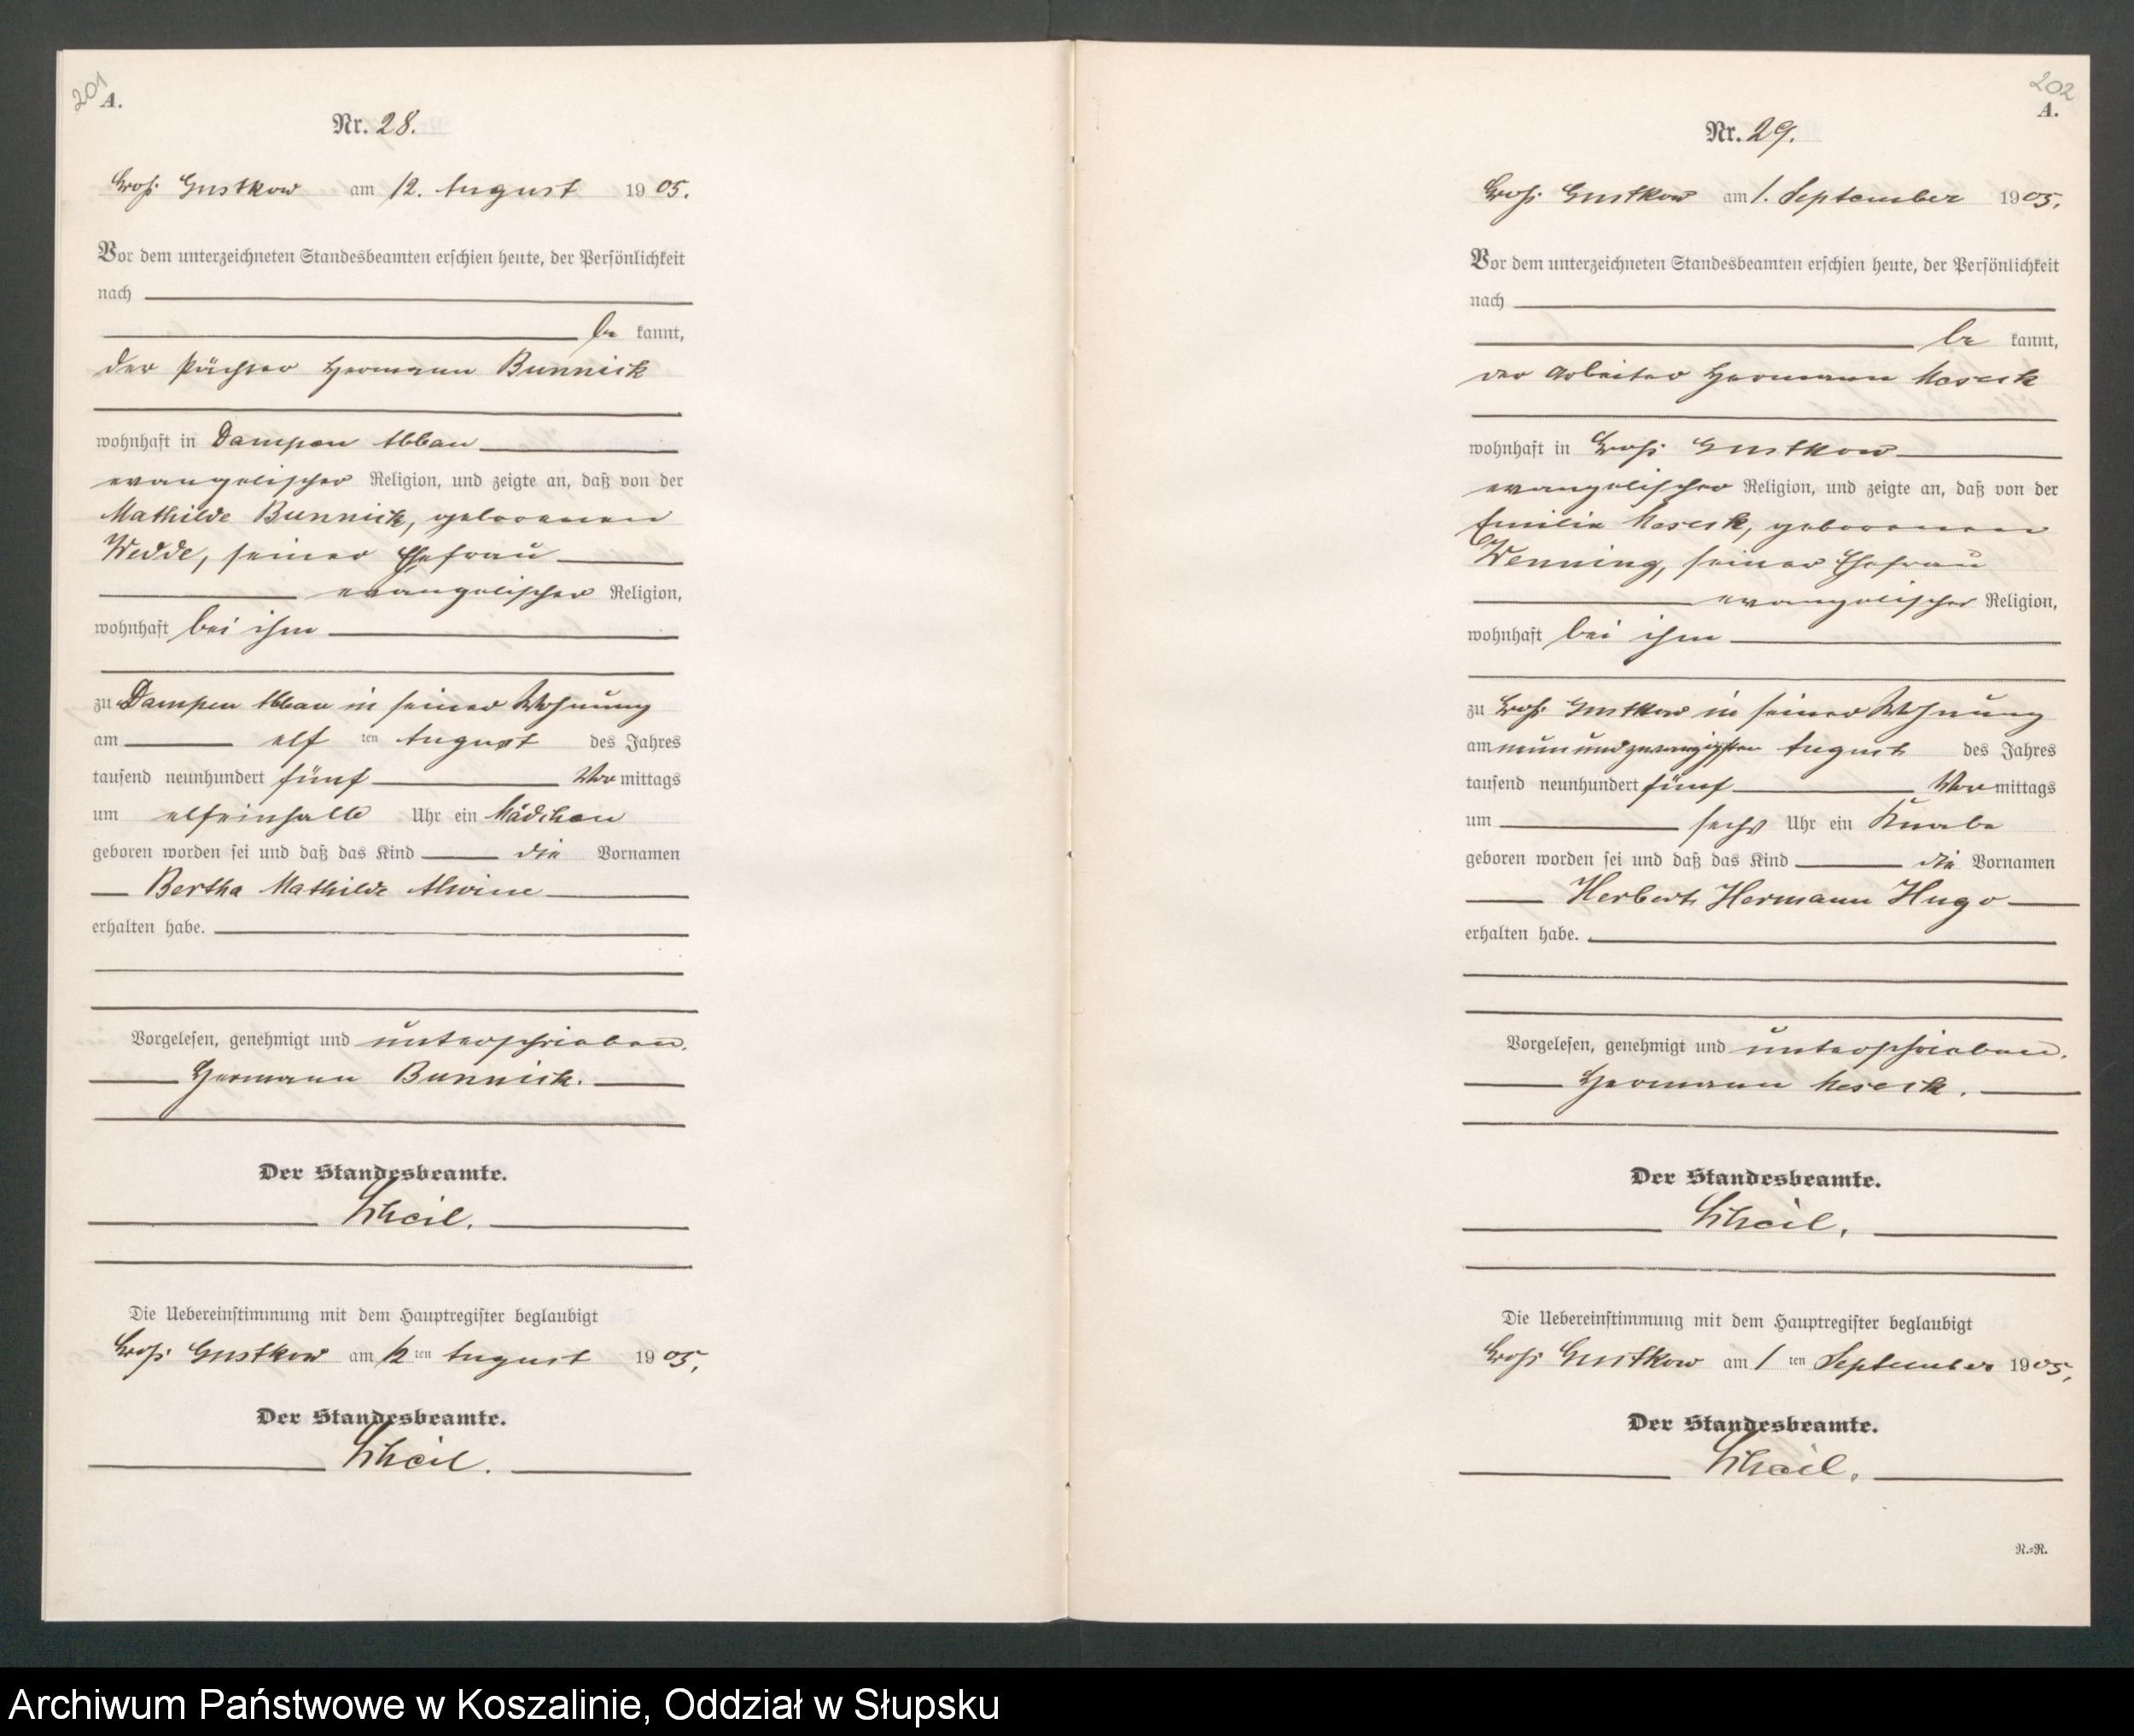 201
A.
Nr. 28.
Groß Gustkow am 12. August 1905.
Vor dem unterzeichneten Standesbeamten erschien heute, der Persönlichkeit
nach
be kannt,
der Pächter Hermann Bunnick
wohnhaft in Dampen Abbau
evangelischer Religion, und zeigte an, daß von der
Mathilde Bunnick, geborenen
Wedde, seiner Ehefrau
evangelischer Religion,
wohnhaft bei ihm
zu Dampen Abbau in seiner Wohnung
am elf ten August des Jahres
tausend neunhundert fünf Vor mittags
um elfeinhalb Uhr ein Mädchen
geboren worden sei und daß das Kind die Vornamen
Bertha Mathilde Alwine
erhalten habe.
Vorgelesen, genehmigt und unterschrieben.
Hermann Bunnick.
Der Standesbeamte.
Der Uebereinstimmung mit dem Hauptregister beglaubigt
Groß Gustkow am 12 ten August 1905.
Der Standesbeamte.
202
A.
Nr. 29.
Groß Gustkow am 1. September 1905.
Vor dem unterzeichneten Standesbeamten erschien heute, der Persönlichkeit
nach
be kannt,
der Arbeiter Hermann Meseck
wohnhaft in Groß Gustkow
evangelischer Religion, und zeigte an, daß von der
Emilie Meseck, geborenen
Wenning, seiner Ehefrau
evangelischer Religion,
wohnhaft bei ihm
zu Groß Gustkow in seiner Wohnung
am neunundzwanzigsten August des Jahres
tausend neunhundert fünf Vor mittags
um sechs Uhr ein Knabe
geboren worden sei und daß das Kind die Vornamen
Herbert Hermann Hugo
erhalten habe.
Vorgelesen, genehmigt und unterschrieben.
Hermann Meseck.
Der Standesbeamte.
Die Uebereinstimmung mit dem Hauptregister beglaubigt
Groß Gustkow am 1 ten September 1905.
Der Standesbeamte.
R.=R.
Archiwum Państwowe w Koszalinie, Oddział w Słupsku